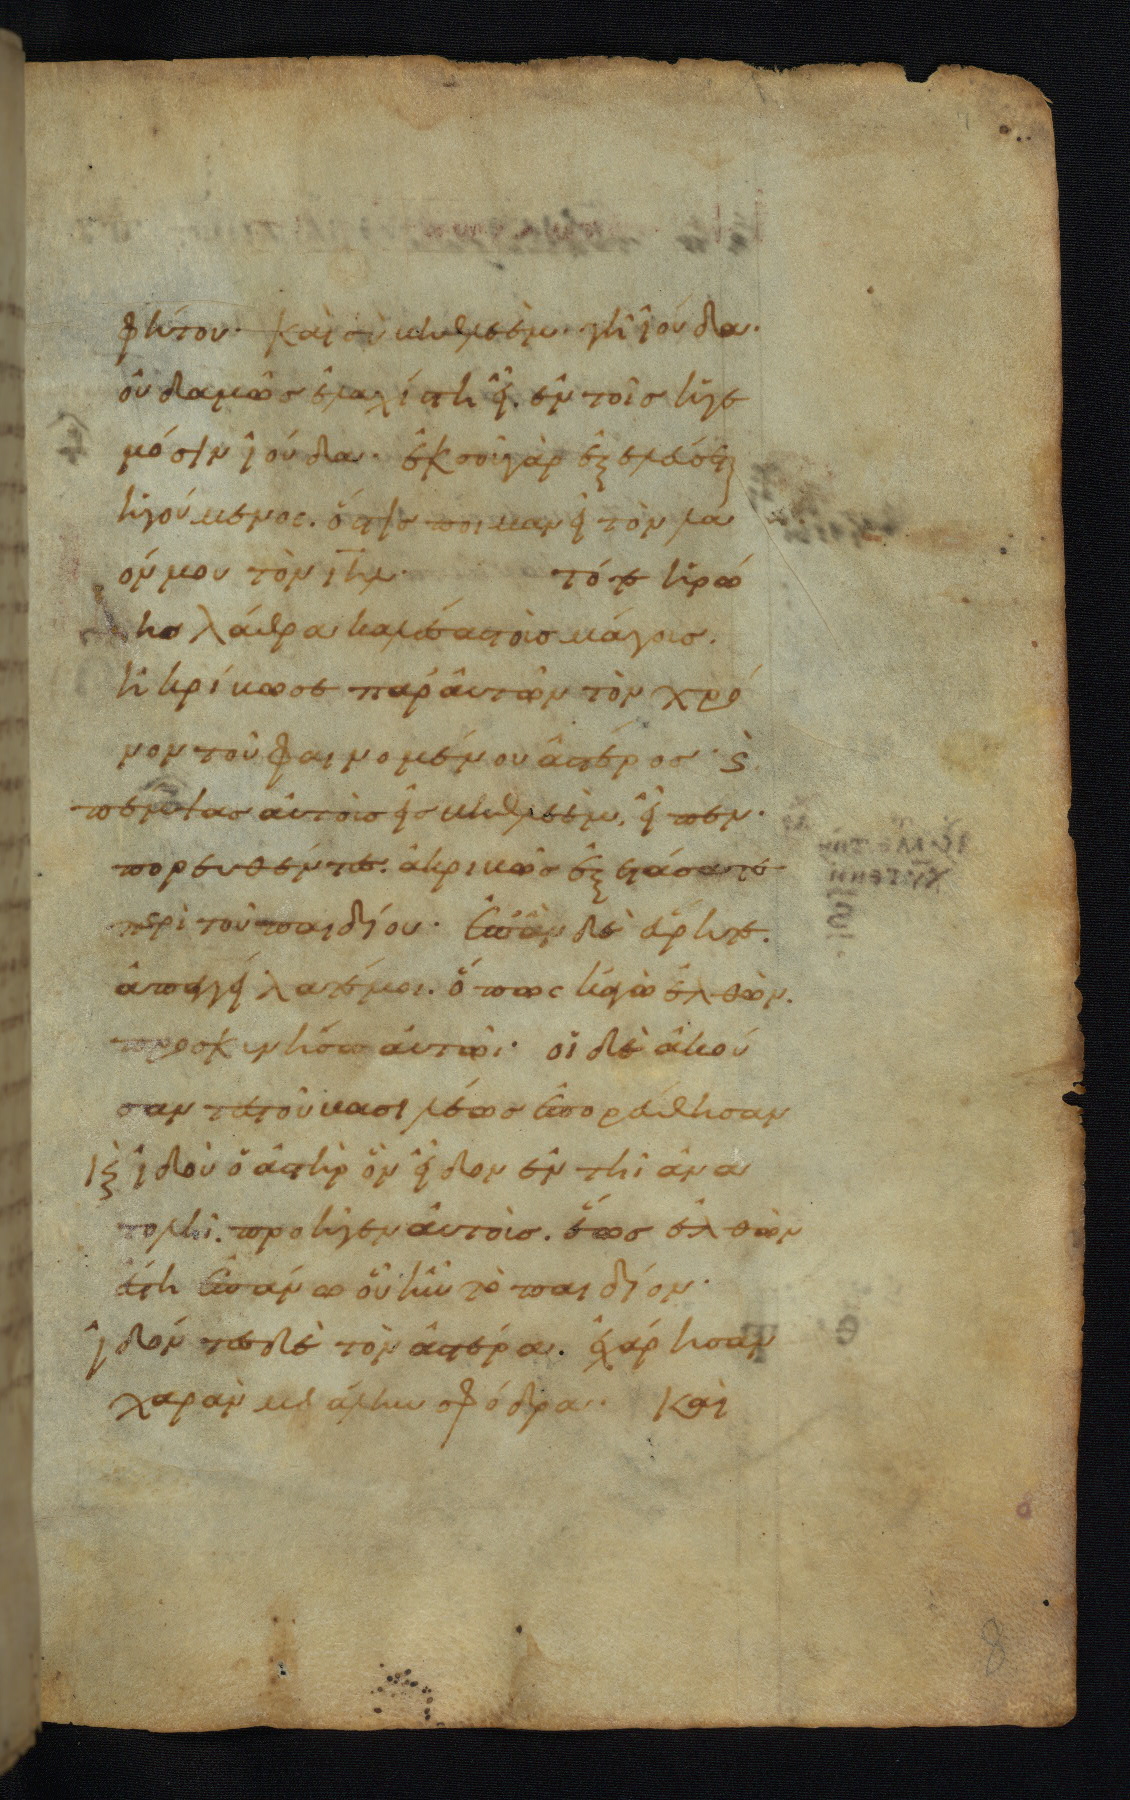 φήτου· καὶ σὺ βηθλεέμ· γῆ ἰούδα·
οὐδαμῶς ἐλαχίστη εἶ. ἐν τοῖς ἡγε
μόσιν ἰούδα· ἐκ σοῦ γὰρ ἐξελεύσεται
ἡγούμενος. ὅστις ποιμανεῖ τὸν λα
όν μου τὸν ιηλ· τότε ἡρώ
δης λάθρα καλέσας τοὺς μάγους.
ἠκρίβωσε παρ' αὐτῶν τὸν χρό
νον τοῦ φαινομένου ἀστέρος· ϗ
πέμψας αὐτοὺς εἰς βηθλεέμ, εἶπεν·
πορευθέντες. ἀκριβῶς ἐξετάσατε
περὶ τοῦ παιδίου· ἐπὰν δὲ εὕρητε.
ἀπαγγείλατέ μοι. ὅπως κἀγὼ ἐλθὼν.
προσκυνήσω αὐτῶ· οἱ δὲ ἀκού
σαντες τοῦ βασιλέως ἐπορεύθησαν
ϗ ἰδοὺ ὁ ἀστὴρ ὃν εἶδον ἐν τῆ ἀνα
τολῆ. προῆγεν αὐτοὺς. ἕως ἐλθὼν
ἔστη ἐπάνω οὗ ἦν τὸ παιδίον·
ἰδόντες δὲ τὸν ἀστέρα. ἐχάρησαν
χαρὰν μεγάλην σφόδρα· καὶ
8